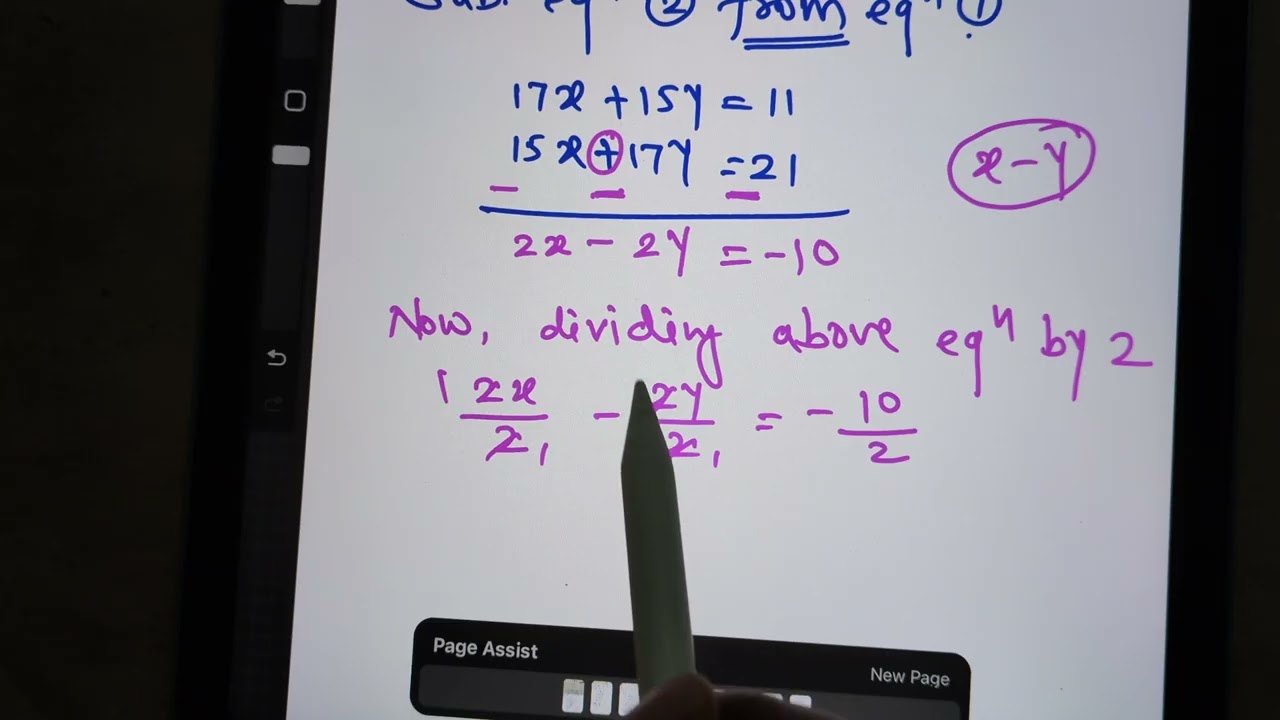 Sub. eqⁿ ② from eqⁿ ①
17x + 15y = 11
15x + 17y = 21
x - y
2x - 2y = -10
Now, dividing above eqⁿ by 2
1 2x/2 1 - 2y/2 1 = - 10/2
Page Assist
New Page